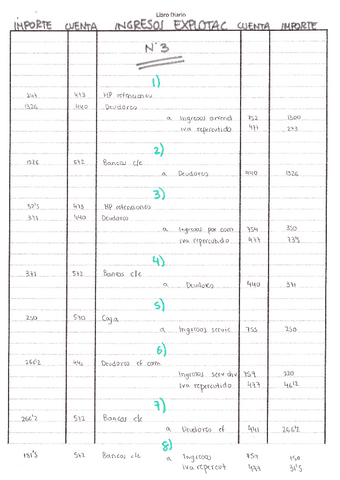 Libro Diario
IMPORTE CUENTA INGRESOS EXPLOTAC CUENTA IMPORTE
Nº3
1)
247 473 HP retenciones
1326 440 Deudores
a Ingresos arrend 752 1300
iva repercutido 477 273
2)
1326 572 Bancos c/c
a Deudores 440 1326
3)
52'5 473 HP retenciones
371 440 Deudores
a Ingresos por com 754 350
iva repercutido 477 73'5
4)
371 572 Bancos c/c
a Deudores 440 371
5)
250 570 Caja
a Ingresos servic 755 250
6)
266'2 441 Deudores ef com
Ingresos serv div 759 220
iva repercutido 477 46'2
7)
266'2 572 Bancos c/c
a Deudores ef 441 266'2
8)
181'5 572 Bancos c/c a Ingresos 759 150
iva repercut 477 31'5